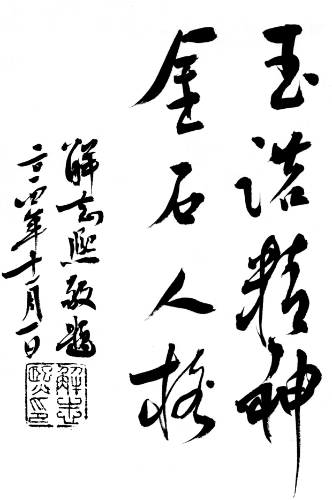 玉诺精神
金石人格
解志熙敬题
二〇一四年十一月一日
解志熙印